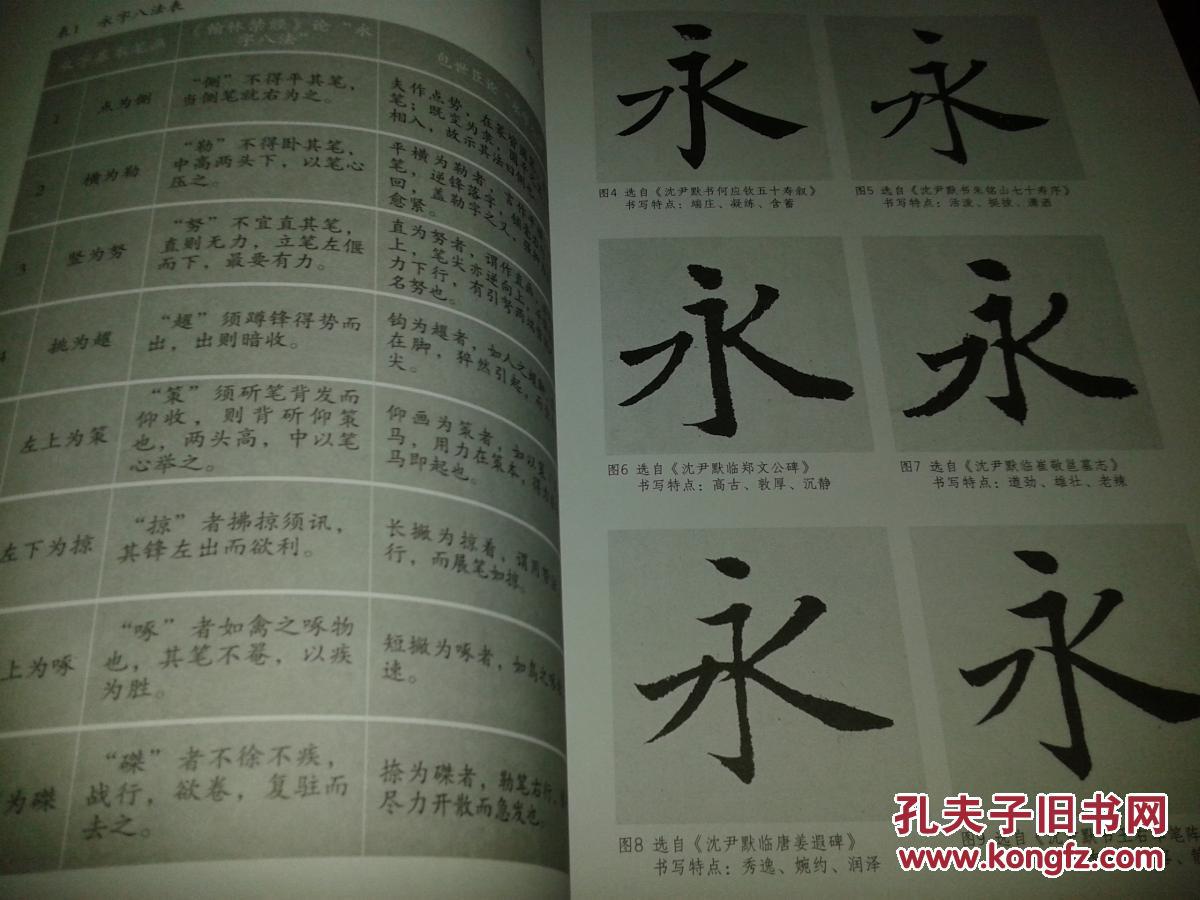 表1 永字八法表
《翰林禁经》论“永
字八法”
1
点为侧
“侧”不得平其笔，
当侧笔就右为之。
夫作点势，在篆皆
笔；既变为隶，圆
相入，故示其法曰侧
2
横为勒
“勒”不得卧其笔，
中高两头下，以笔心
压之。
平横为勒者，言作
笔，逆锋落字，
回，盖勒字之义，
愈紧。
3
竖为努
“努”不宜直其笔，
直则无力，立笔左偃
而下，最要有力。
直为努者，谓作直
上，笔尖亦逆向上，
力下行，有引努两
名努也。
4
挑为趯
“趯”须蹲锋得势而
出，出则暗收。
钩为趯者，如人之
在脚，猝然引起，
尖。
左上为策
“策”须斫笔背发而
仰收，则背斫仰策
也，两头高，中以笔
心举之。
仰画为策者，如以
马，用力在策本，得
马即起也。
左下为掠
“掠”者拂掠须讯，
其锋左出而欲利。
长撇为掠者，谓用
行，而展笔如掠。
上为啄
“啄”者如禽之啄物
也，其笔不罨，以疾
为胜。
短撇为啄者，如鸟之啄
速。
为磔
“磔”者不徐不疾，
战行，欲卷，复驻而
去之。
捺为磔者，勒笔右行，
尽力开散而急发也
永
永
图4 选自《沈尹默书何应钦五十寿叙》
书写特点：端庄、凝练、含蓄
图5 选自《沈尹默书朱铭山七十寿序》
书写特点：活泼、挺拔、潇洒
永
永
图6 选自《沈尹默临郑文公碑》
书写特点：高古、敦厚、沉静
图7 选自《沈尹默临崔敬邕墓志》
书写特点：遒劲、雄壮、老辣
永
永
图8 选自《沈尹默临唐姜遐碑》
书写特点：秀逸、婉约、润泽
图9 选自《沈尹默书王右军笔阵
孔夫子旧书网
www.kongfz.com